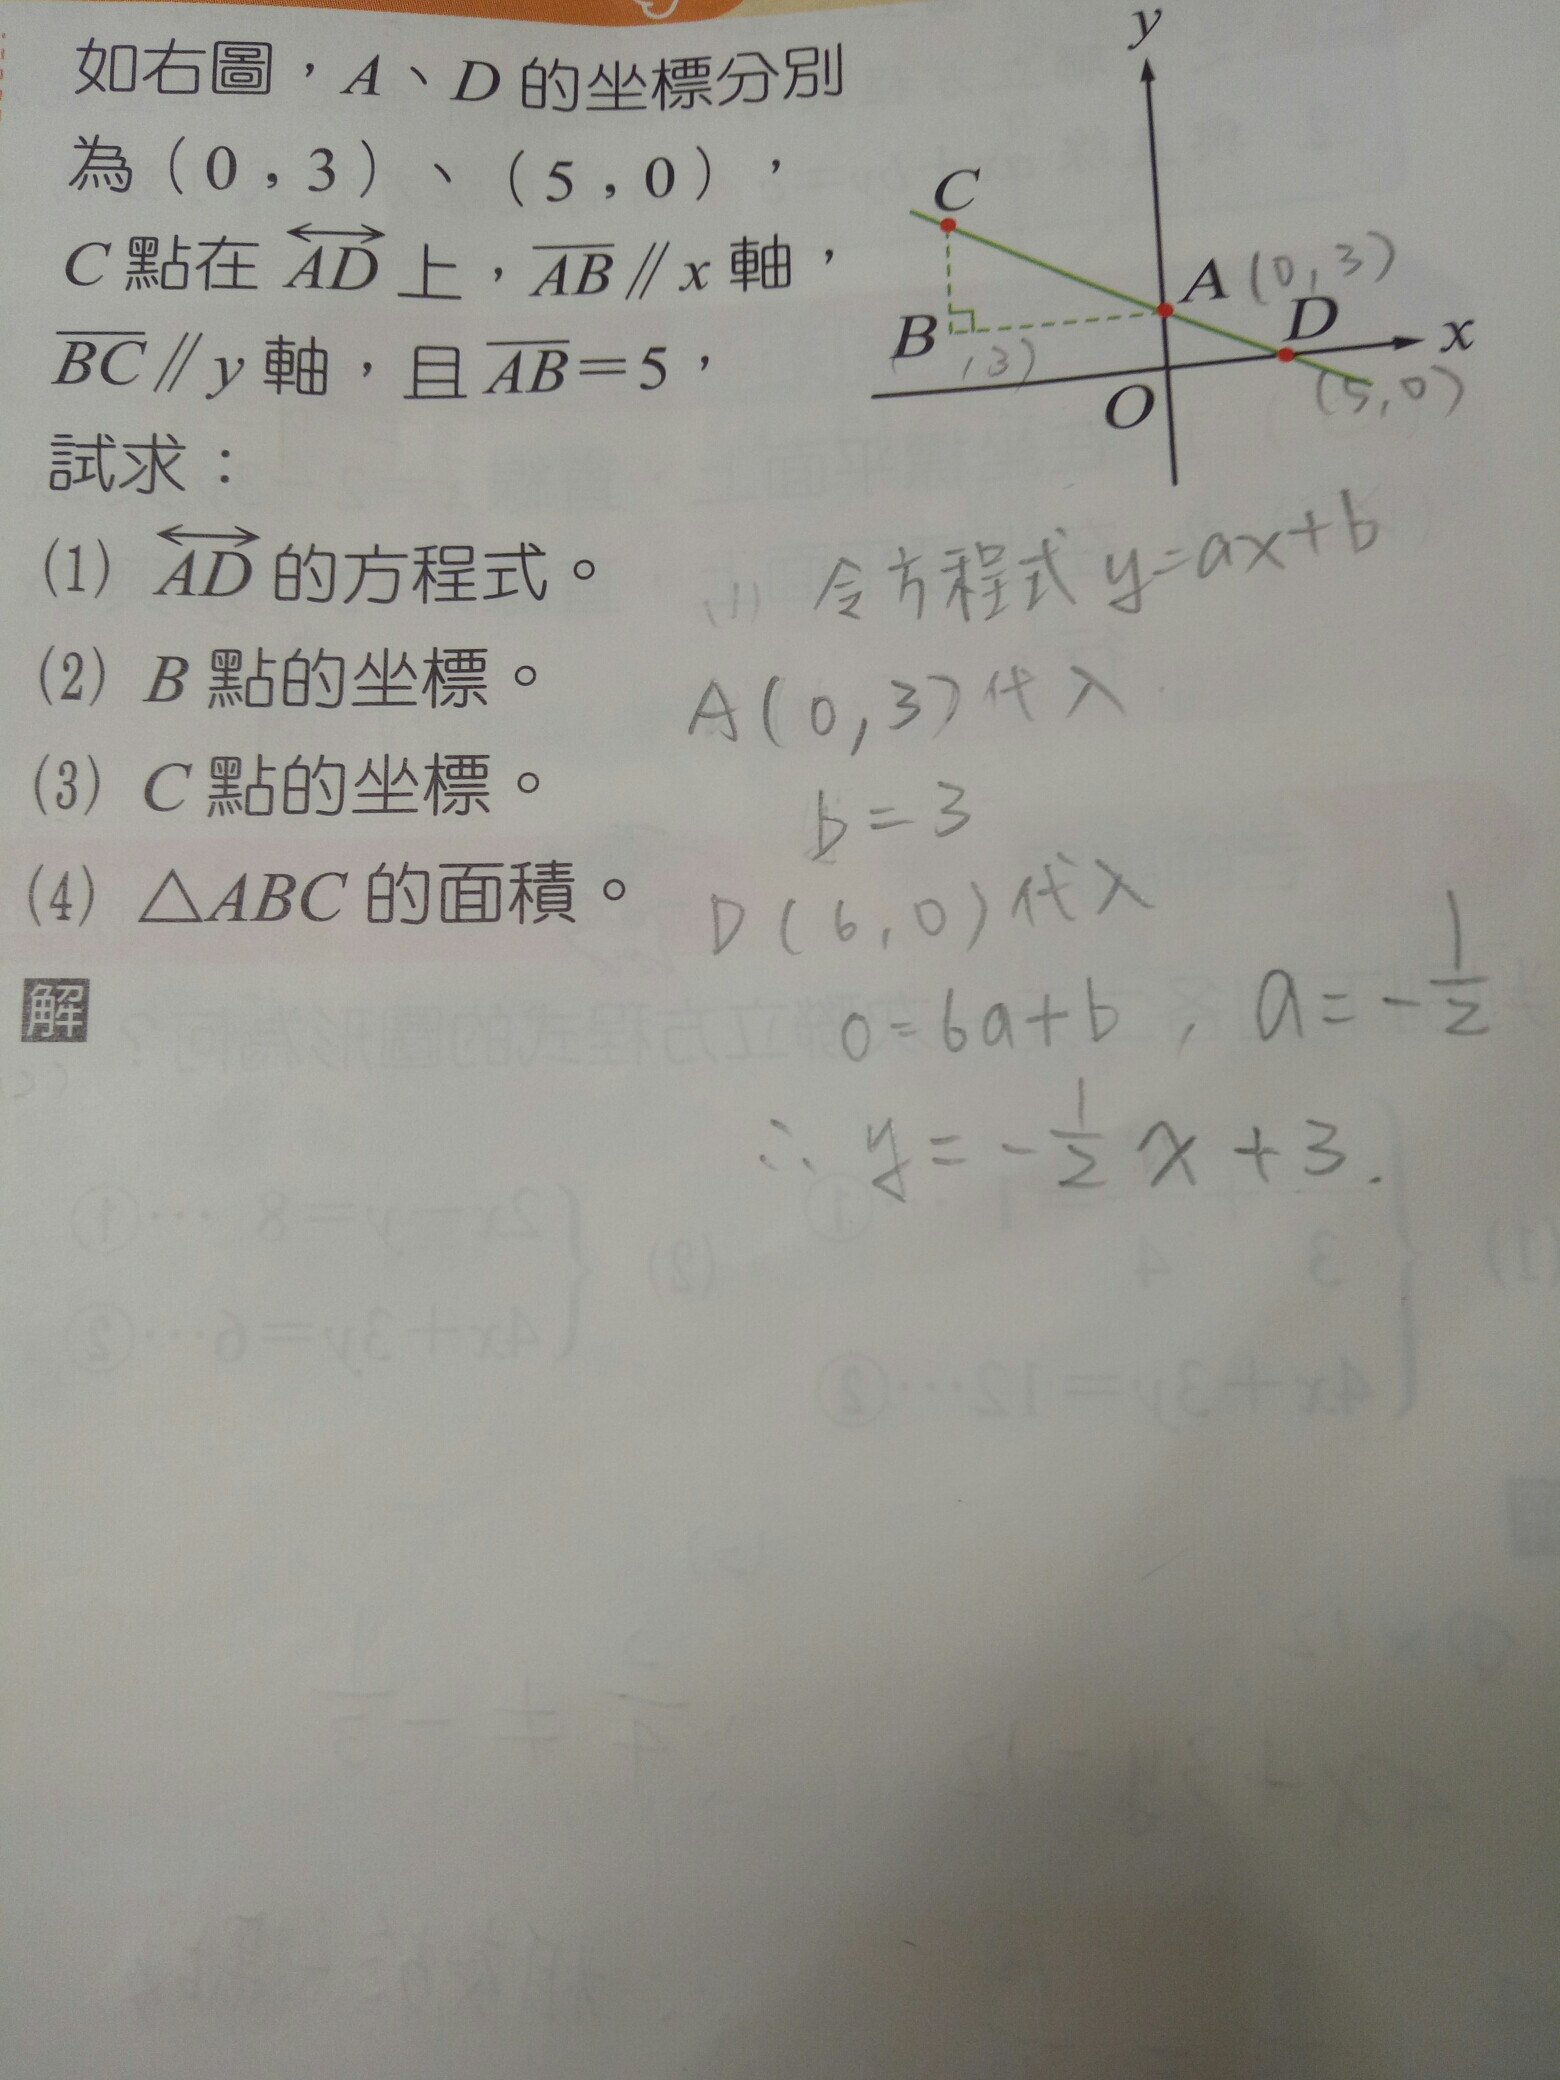 如右圖，A、D 的坐標分別
為（0 , 3）、（5 , 0），
C 點在 AD 上，AB // x 軸，
BC // y 軸，且 AB = 5，
試求：
(1) AD 的方程式。
(2) B 點的坐標。
(3) C 點的坐標。
(4) △ABC 的面積。
解
y
C
A (0, 3)
B
, 3)
D
x
O
(5, 0)
(1) 令方程式 y=ax+b
A(0,3)代入
b=3
D(6,0)代入
0=6a+b , a=-1/2
∴ y=-1/2 x+3.